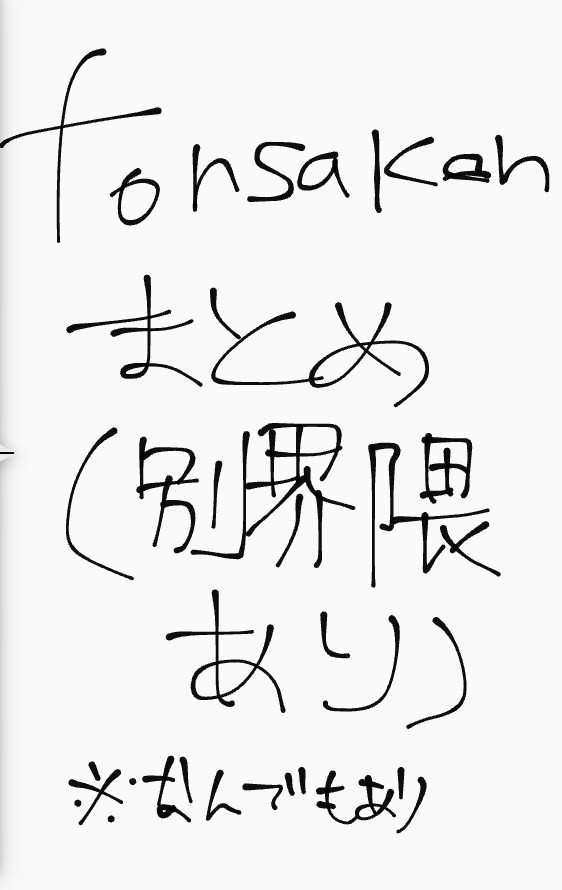 fonsaken
まとめ
(別界隈
あり)
※なんでもあり